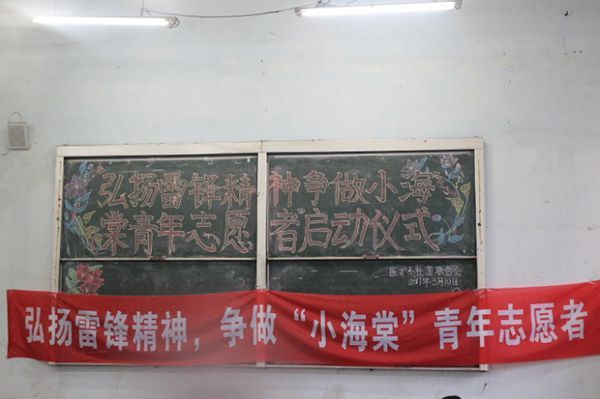 “弘扬雷锋精神争做小海
棠青年志愿者”启动仪式
医护系社团联合会
2017年3月10日
弘扬雷锋精神，争做“小海棠”青年志愿者